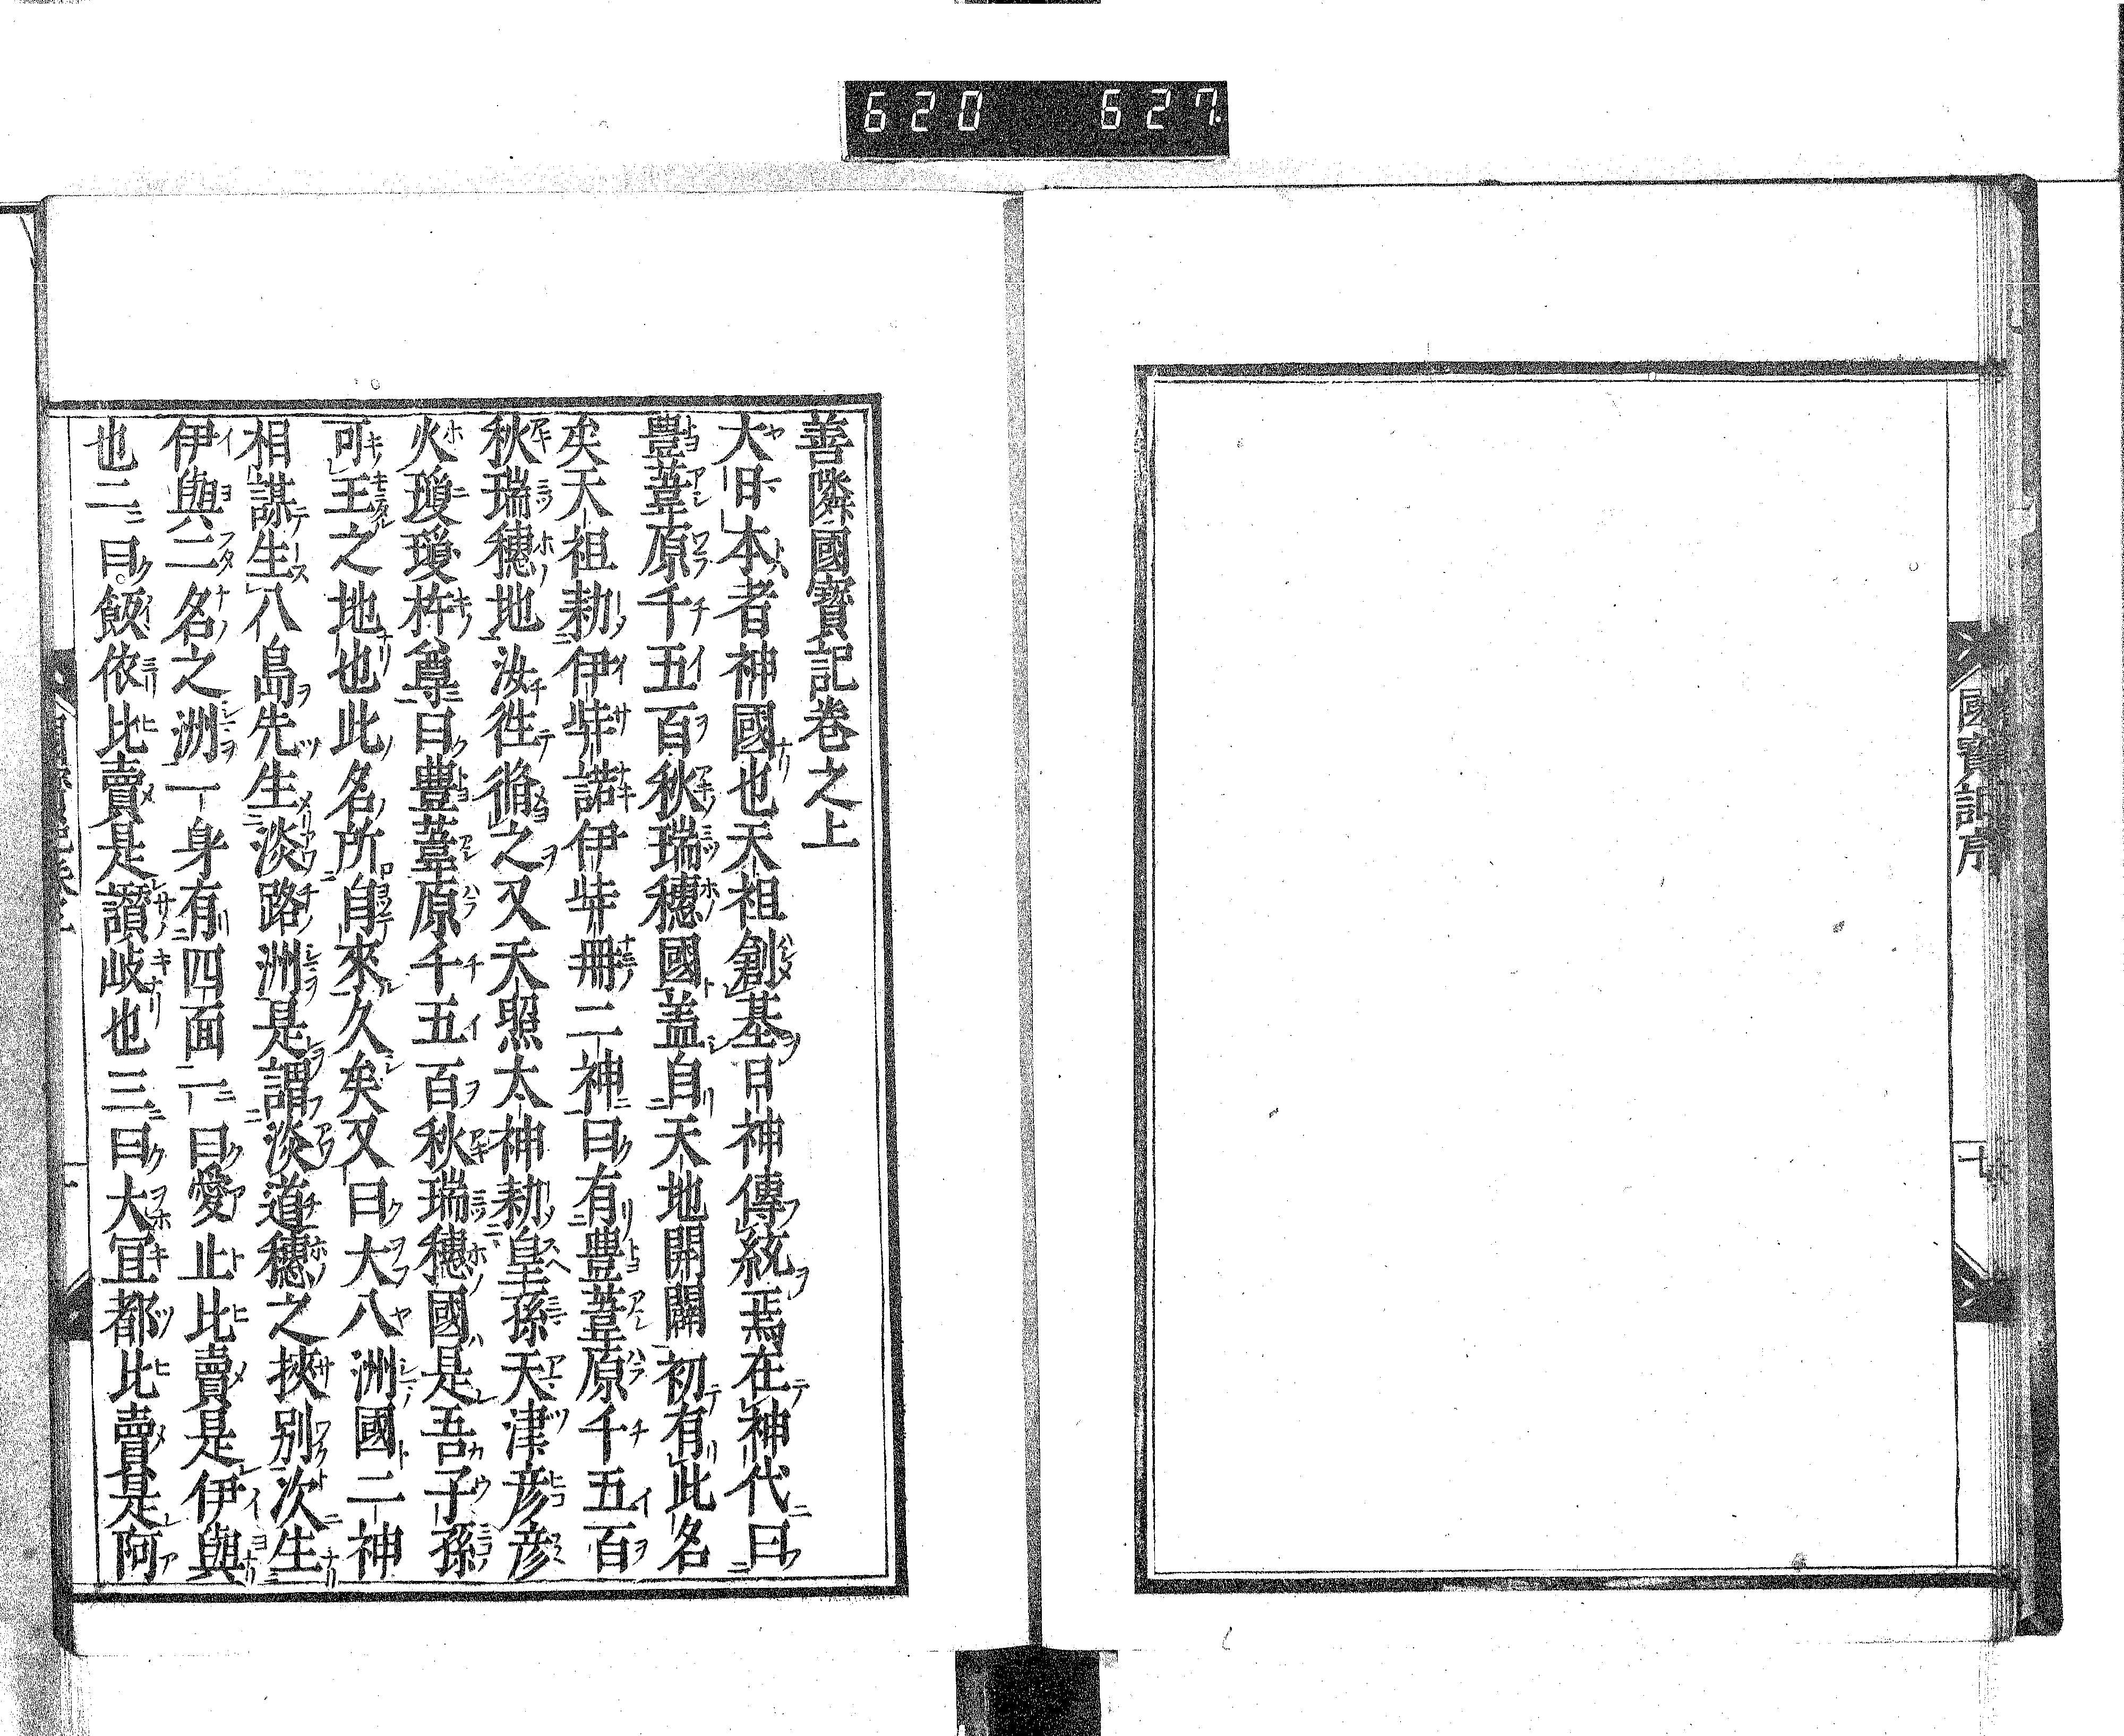 620 627
國寶記序
善隣國寳記卷之上
大日本者神國也天祖創基日神傳統焉在神代曰
豊葦原千五百秋瑞穗國盖自天地開闢初有此名
矣天祖勅伊弉諾伊弉冊二神曰有豊葦原千五百
秋瑞穗地汝徃循之又天照太神勅皇孫天津彦彦
火瓊瓊杵尊曰豊葦原千五百秋瑞穗國是吾子孫
可王之地也此名所自來久矣又曰大八洲國二神
相謀生八島先生淡路洲是謂淡道穗之挾別次生
伊與二名之洲一身有四面一曰愛止比賣是伊與
也二曰飯依比賣是讃岐也三曰大宜都比賣是阿